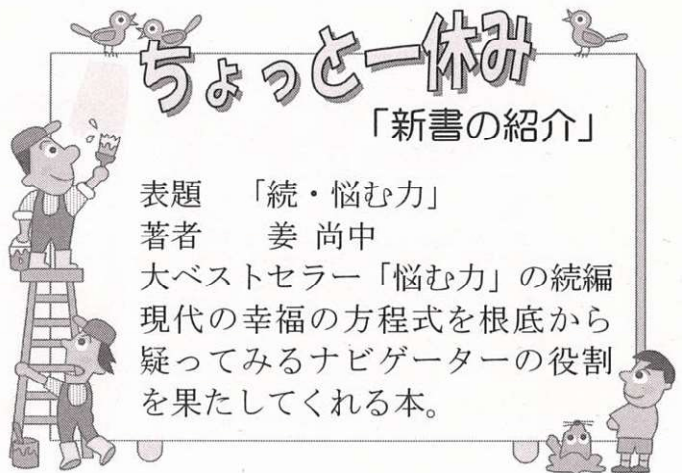 ちょっと一休み
「新書の紹介」
表題　「続・悩む力」
著者　　姜 尚中
大ベストセラー「悩む力」の続編
現代の幸福の方程式を根底から
疑ってみるナビゲーターの役割
を果たしてくれる本。